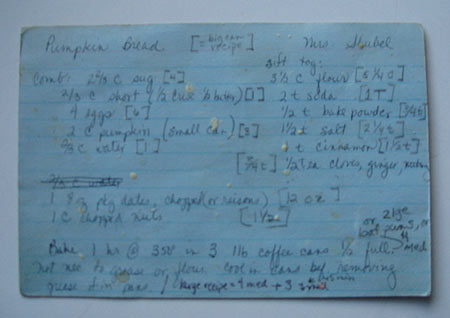 Pumpkin Bread [= big can recipe] Mrs.
Sift tog:
Comb: 2 2/3 c sug [4] 3 1/3 c flour [5 1/4 c]
2/3 c short (1/2 Crix 1/2 butter) [1] 2 t soda [1T]
4 eggs [6] 1/2 t bake powder [3/4 t]
2 c pumpkin (small can) [3] 1 1/2 t salt [2 1/4 t]
2/3 c water [1] 1 t cinnamon [1 1/2 t]
[3/4 t] 1/2 tea cloves, ginger, nutmeg
2/3 c water
1 8 oz pkg dates, chopped (or raisons) [12 oz]
1 c chopped nuts [1 1/2] or 2 lge
loaf pans, or
4 med
Bake 1 hr @ 350° in 3 1lb coffee cans 1/2 full.
Not nec to grease or flour. Cool in cans bef removing
grease &flr pans. / large recipe = 4 med + 3